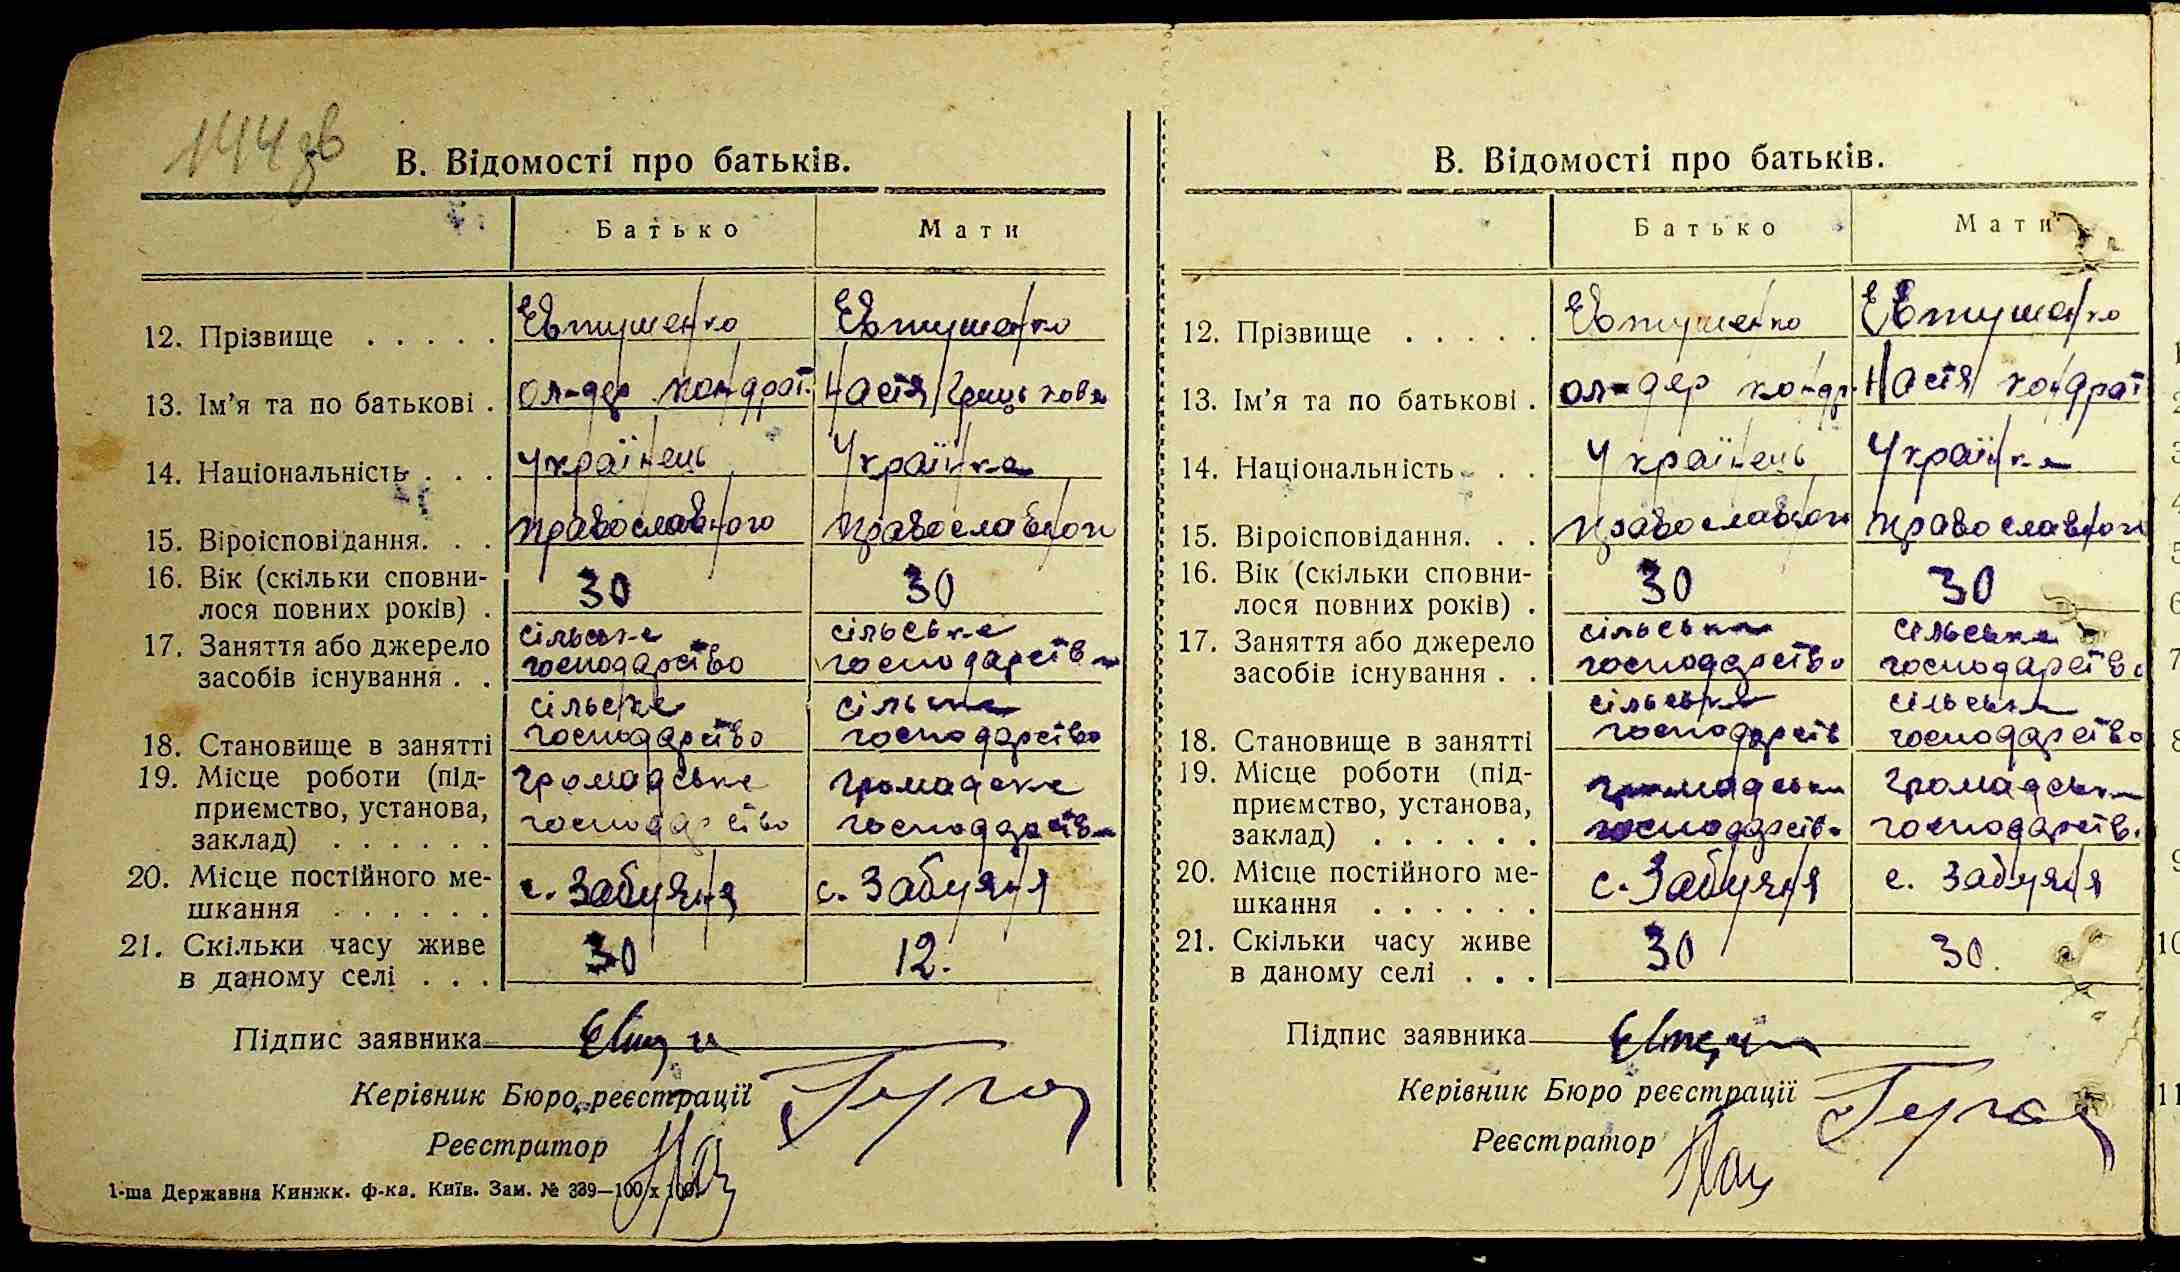 144 зв
В. Відомості про батьків.
Батько Мати
12. Прізвище . . . . . Евтушенко Евтушенко
13. Ім'я та по батькові . Ол-дер Кондрат. Настя Грицькова
14. Національність . . . Українець Українка
15. Віроісповідання. . . православного православног
16. Вік (скільки сповни-
лося повних років) . 30 30
17. Заняття або джерело
засобів існування . . сільське господарство сільське господарств
18. Становище в занятті сільске господарство сільське господарство
19. Місце роботи (під-
приємство, установа,
заклад) . . . . . . громадське господарство громадске господарств
20. Місце постійного ме-
шкання . . . . . . с. Забуяня с. Забуяня
21. Скільки часу живе
в даному селі . . . 30 12.
Підпис заявника
Керівник Бюро реєстрації
Реєстратор
1-ша Державна Книжк. ф-ка. Київ. Зам. № 339—100 х 100.
В. Відомості про батьків.
Батько Мати
12. Прізвище . . . . . Евтушенко Евтушенко
13. Ім'я та по батькові . Ол-дер Кондр. Настя Кондрат
14. Національність . . . Українець Українка
15. Віроісповідання. . . православног православног
16. Вік (скільки сповни-
лося повних років) . 30 30
17. Заняття або джерело
засобів існування . . сільське господарство сільське господарство
18. Становище в занятті сільське господарств сільське господарство
19. Місце роботи (під-
приємство, установа,
заклад) . . . . . . громадське господарств. громадське господарств.
20. Місце постійного ме-
шкання . . . . . . с. Забуяня с. Забуяня
21. Скільки часу живе
в даному селі . . . 30 30.
Підпис заявника
Керівник Бюро реєстрації
Реєстратор